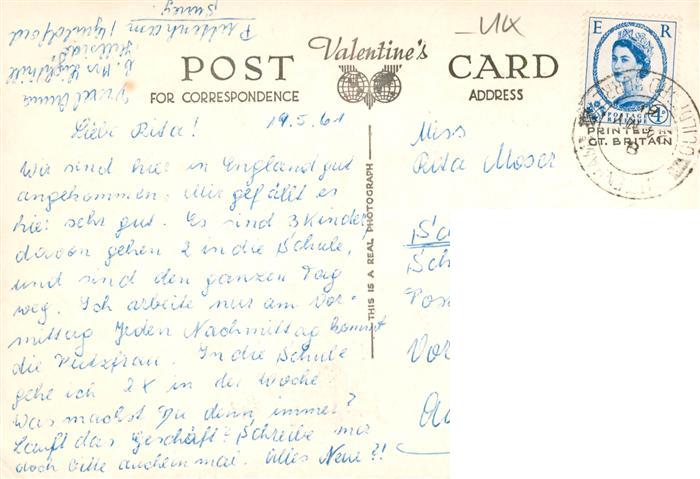 Puttenham / Guildford
Surrey
Hillside
POST
Valentine's
CARD
FOR CORRESPONDENCE
ADDRESS
E R
POSTAGE REVENUE
4D
PRINTED IN
GT. BRITAIN
THIS IS A REAL PHOTOGRAPH
Liebe Rita! 19.5.61
Wir sind hier in England gut
angekommen. Mir gefällt es
hier sehr gut. Es sind 3 Kinder,
davon gehen 2 in die Schule,
und sind den ganzen Tag
weg. Ich arbeite nur am Vor-
mittag. Jeden Nachmittag kommt
die Putzfrau. In die Schule
gehe ich 2X in der Woche.
Was machst Du denn immer?
Lauft das Geschäft? Schreibe mir
doch bitte auch einmal. Alles Neue?!
Miss
Rita Moser
Sc
Sch
Pos
Vor